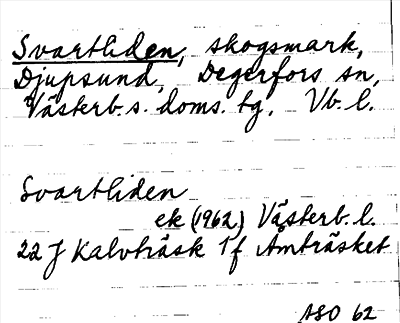 Svartliden, skogsmark,
Djupsund, Degerfors sn,
Västerb. s. doms. tg. Vb. l.
Svartliden
ek (1962) Västerb. l.
22 J Kalvträsk 1 f Åmträsket
ASO 62